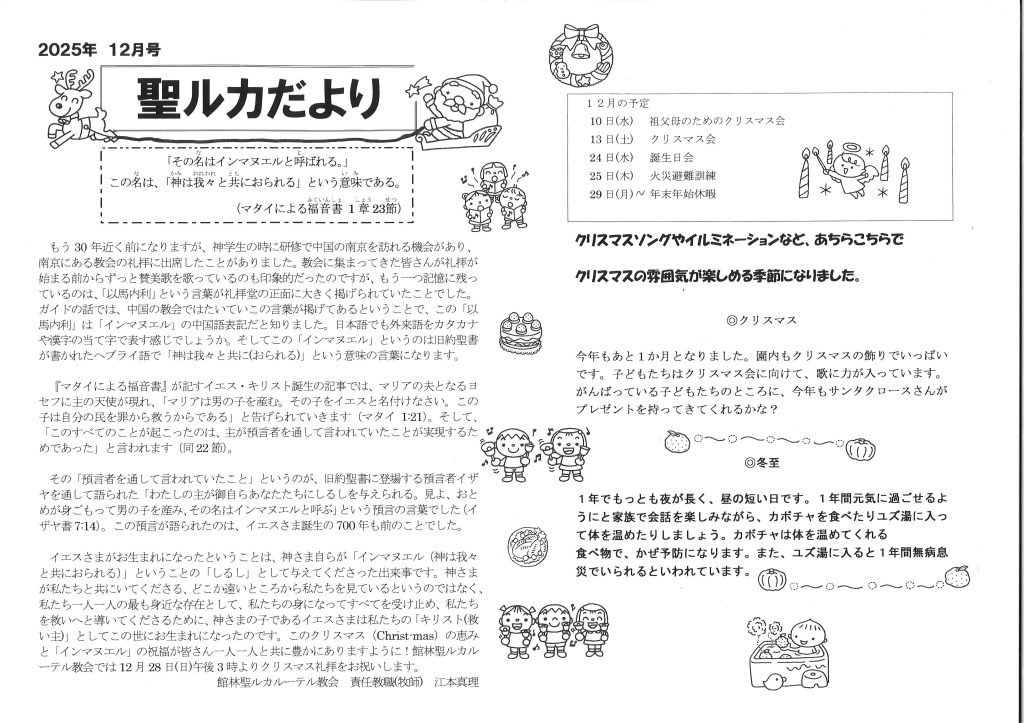 2025年 12月号
聖ルカだより
「その名はインマヌエルと呼ばれる。」
この名は、「神は我々と共におられる」という意味である。
(マタイによる福音書 1章 23節)
もう 30 年近く前になりますが、神学生の時に研修で中国の南京を訪れる機会があり、
南京にある教会の礼拝に出席したことがありました。教会に集まってきた皆さんが礼拝が
始まる前からずっと賛美歌を歌っているのも印象的だったのですが、もう一つ記憶に残っ
ているのは、「以馬内利」という言葉が礼拝堂の正面に大きく掲げられていたことでした。
ガイドの話では、中国の教会ではたいていこの言葉が掲げてあるということで、この「以
馬内利」は「インマヌエル」の中国語表記だと知りました。日本語でも外来語をカタカナ
や漢字の当て字で表す感じでしょうか。そしてこの「インマヌエル」というのは旧約聖書
が書かれたヘブライ語で「神は我々と共に(おられる)」という意味の言葉になります。
『マタイによる福音書』が記すイエス・キリスト誕生の記事では、マリアの夫となるヨ
セフに主の天使が現れ、「マリアは男の子を産む。その子をイエスと名付けなさい。この
子は自分の民を罪から救うからである」と告げられていきます（マタイ 1:21）。そして、
「このすべてのことが起こったのは、主が預言者を通して言われていたことが実現するた
めであった」と言われます（同 22 節）。
その「預言者を通して言われていたこと」というのが、旧約聖書に登場する預言者イザ
ヤを通して語られた「わたしの主が御自らあなたたちにしるしを与えられる。見よ、おと
めが身ごもって男の子を産み、その名をインマヌエルと呼ぶ」という預言の言葉でした（イ
ザヤ書 7:14）。この預言が語られたのは、イエスさま誕生の 700 年も前のことでした。
イエスさまがお生まれになったということは、神さま自らが「インマヌエル（神は我々
と共におられる）」ということの「しるし」として与えてくださった出来事です。神さま
が私たちと共にいてくださる、どこか遠いところから私たちを見ているというのではなく、
私たち一人一人の最も身近な存在として、私たちの身になってすべてを受け止め、私たち
を救いへと導いてくださるために、神さまの子であるイエスさまは私たちの「キリスト(救
い主)」としてこの世にお生まれになったのです。このクリスマス（Christ-mas）の恵み
と「インマヌエル」の祝福が皆さん一人一人と共に豊かにありますように！館林聖ルカル
ーテル教会では 12 月 28 日(日)午後 3 時よりクリスマス礼拝をお祝いします。
館林聖ルカルーテル教会　責任教職(牧師)　江本真理
１２月の予定
10 日(水)　祖父母のためのクリスマス会
13 日(土)　クリスマス会
24 日(水)　誕生日会
25 日(木)　火災避難訓練
29 日(月)～ 年末年始休暇
クリスマスソングやイルミネーションなど、あちらこちらで
クリスマスの雰囲気が楽しめる季節になりました。
◎クリスマス
今年もあと１か月となりました。園内もクリスマスの飾りでいっぱい
です。子どもたちはクリスマス会に向けて、歌に力が入っています。
がんばっている子どもたちのところに、今年もサンタクロースさんが
プレゼントを持ってきてくれるかな？
◎冬至
１年でもっとも夜が長く、昼の短い日です。１年間元気に過ごせるよ
うにと家族で会話を楽しみながら、カボチャを食べたりユズ湯に入っ
て体を温めたりしましょう。カボチャは体を温めてくれる
食べ物で、かぜ予防になります。また、ユズ湯に入ると１年間無病息
災でいられるといわれています。